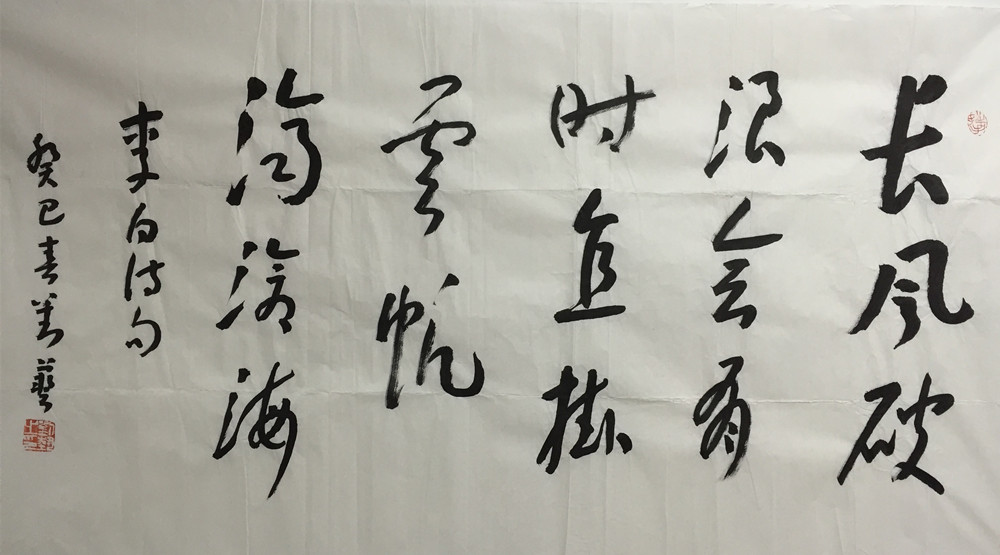 长风破
浪会有
时直掛
雲帆
济沧海
李白诗句
癸巳春劉藝